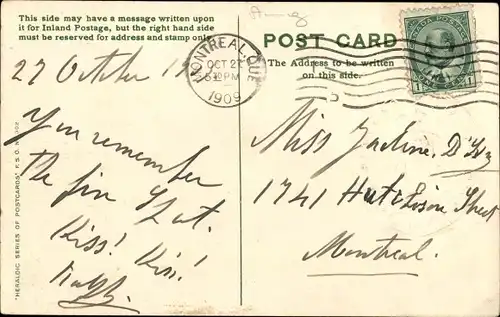 This side may have a message written upon
it for Inland Postage, but the right hand side
must be reserved for address and stamp only.
27 October
You remember
the
Kiss! Kiss!
"HERALDIC SERIES OF POSTCARDS"
POST CARD
The Address to be written
on this side.
MONTREAL, QUE
OCT 27
PM
1909
CANADA POSTAGE
1
1
Miss
1741 Hutchison Street
Montreal.